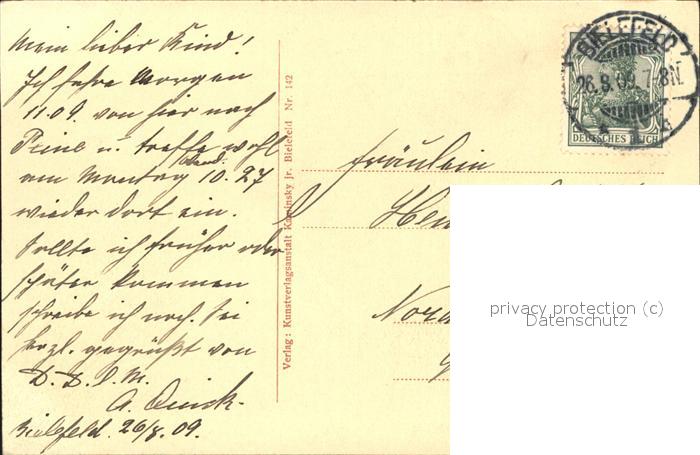 Mein lieber Kind!
Ich fahre Morgen
11.09. von hier nach
Peine u. treffe wohl
am Montag Abend. 10.27
wieder dort ein.
Sollte ich früher oder
später kommen
schreibe ich noch. Sei
herzl. gegrüßt von
D. D. l. M.
A. Quick.
Bielefeld. 26/8.09.
Verlag: Kunstverlagsanstalt Kaminsky jr. Bielefeld Nr. 142
BIELEFELD
26.8.09. 7-8N.
DEUTSCHES REICH
Fräulein
privacy protection (c)
Datenschutz